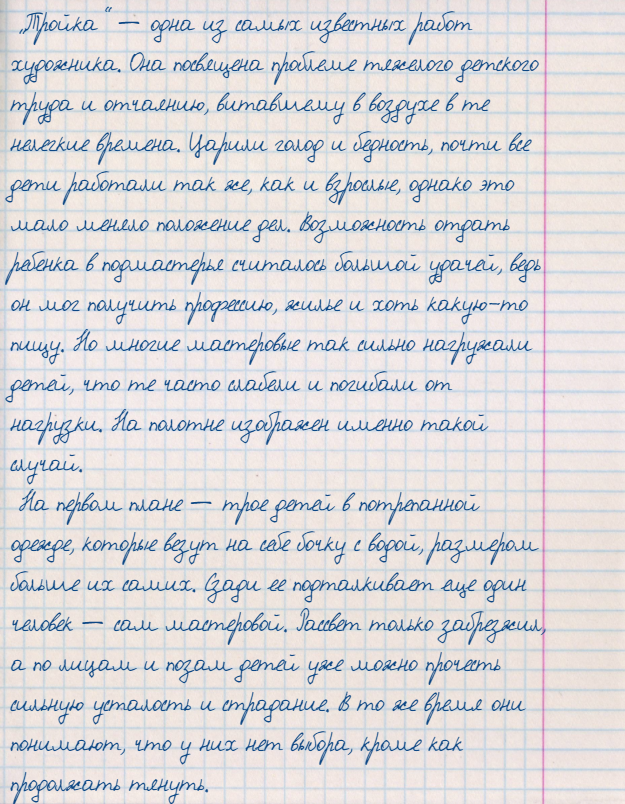 „Тройка“ — одна из самых известных работ
художника. Она посвящена проблеме тяжелого детского
труда и отчаянию, витавшему в воздухе в те
нелегкие времена. Царили голод и бедность, почти все
дети работали так же, как и взрослые, однако это
мало меняло положение дел. Возможность отдать
ребенка в подмастерья считалось большой удачей, ведь
он мог получить профессию, жилье и хоть какую-то
пищу. Но многие мастеровые так сильно нагружали
детей, что те часто слабели и погибали от
нагрузки. На полотне изображен именно такой
случай.
На первом плане — трое детей в потрепанной
одежде, которые везут на себе бочку с водой, размером
больше их самих. Сзади ее подталкивает еще один
человек — сам мастеровой. Рассвет только забрезжил,
а по лицам и позам детей уже можно прочесть
сильную усталость и страдание. В то же время они
понимают, что у них нет выбора, кроме как
продолжать тянуть.